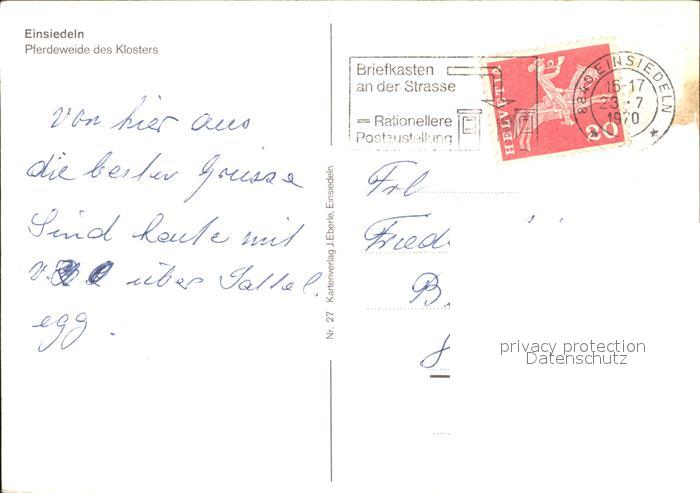 Einsiedeln
Pferdeweide des Klosters
von hier aus
die besten Grüsse
Sind heute mit
über Sattel.
egg.
Nr. 27 Kartenverlag J. Eberle, Einsiedeln
Briefkasten
an der Strasse
= Rationellere
Postzustellung
HELVETIA
20
8840 EINSIEDELN
16-17
23.·7
1970
Frl
Fried
B.
8
privacy protection
Datenschutz